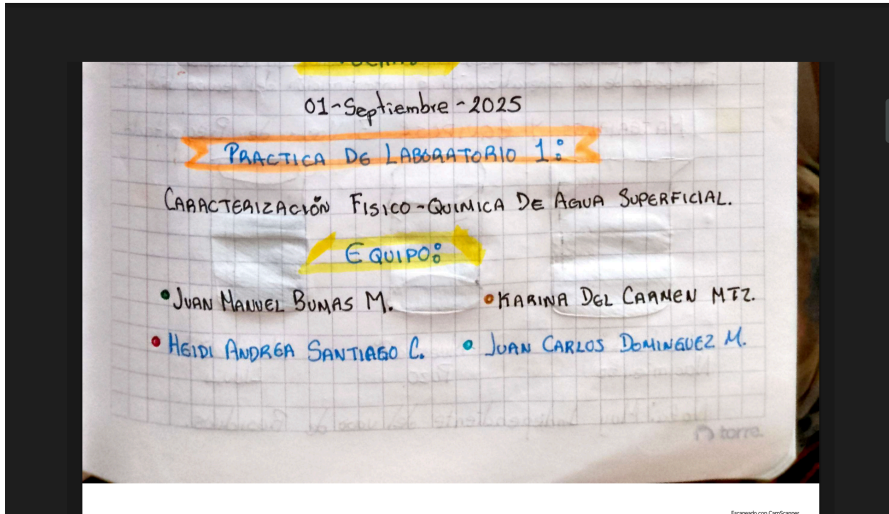 01-Septiembre-2025
PRACTICA DE LABORATORIO 1:
CARACTERIZACIÓN FISICO-QUIMICA DE AGUA SUPERFICIAL.
EQUIPO:
• JUAN MANUEL BUMAS M. • KARINA DEL CARMEN MTZ.
• HEIDI ANDREA SANTIAGO C. • JUAN CARLOS DOMINGUEZ M.
torre
Escaneado con CamScanner